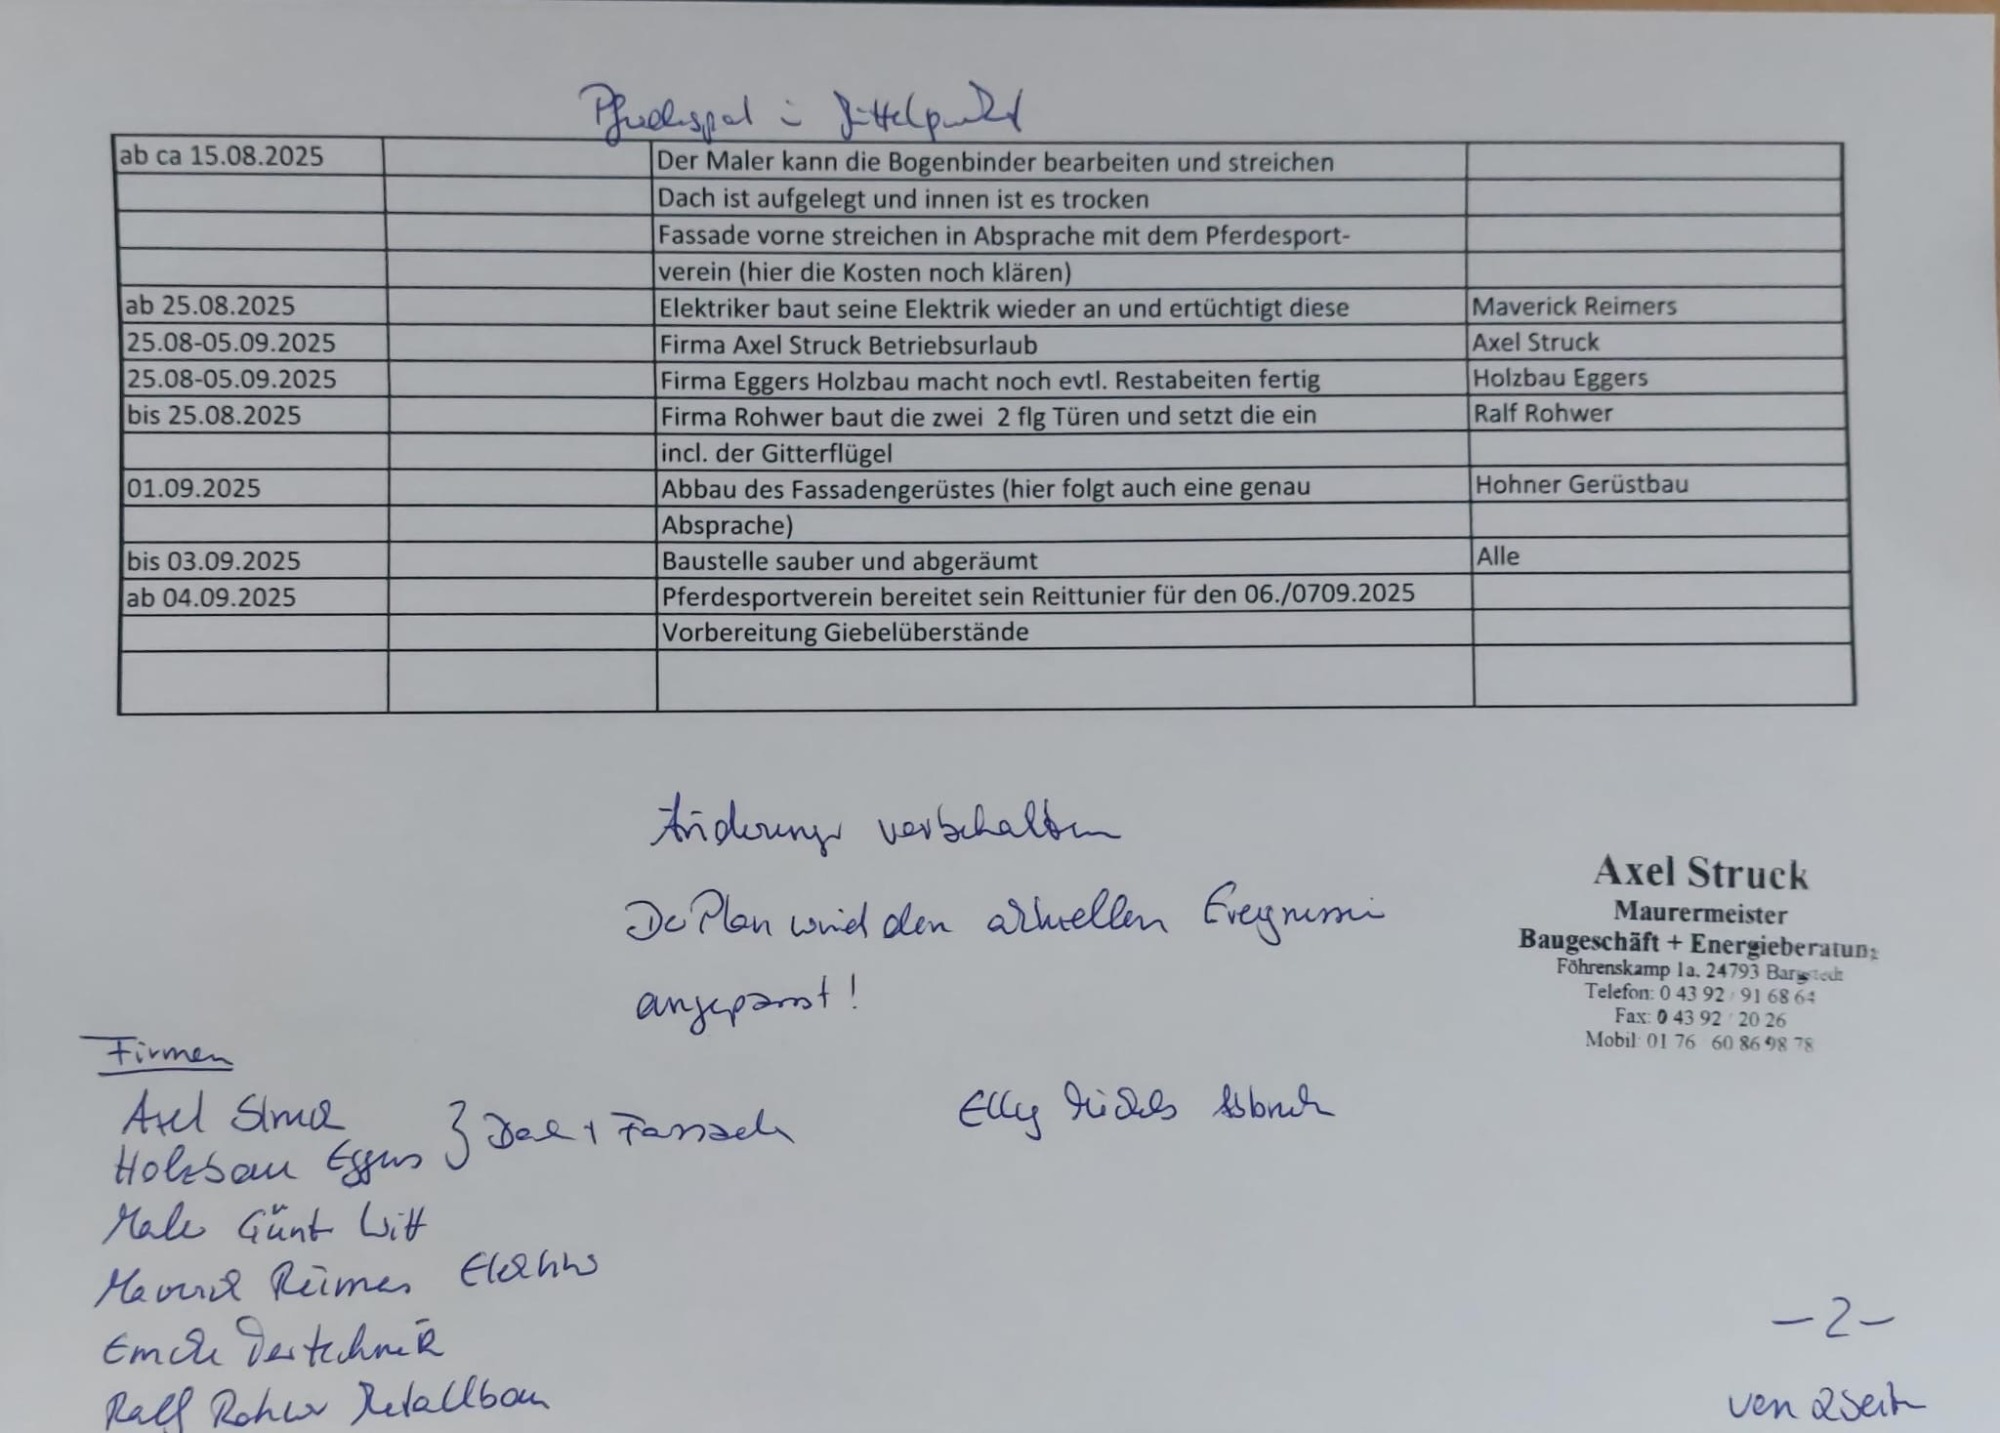 Pferdesport im Mittelpunkt
ab ca 15.08.2025 Der Maler kann die Bogenbinder bearbeiten und streichen
Dach ist aufgelegt und innen ist es trocken
Fassade vorne streichen in Absprache mit dem Pferdesport-
verein (hier die Kosten noch klären)
ab 25.08.2025 Elektriker baut seine Elektrik wieder an und ertüchtigt diese Maverick Reimers
25.08-05.09.2025 Firma Axel Struck Betriebsurlaub Axel Struck
25.08-05.09.2025 Firma Eggers Holzbau macht noch evtl. Restabeiten fertig Holzbau Eggers
bis 25.08.2025 Firma Rohwer baut die zwei 2 flg Türen und setzt die ein Ralf Rohwer
incl. der Gitterflügel
01.09.2025 Abbau des Fassadengerüstes (hier folgt auch eine genau Hohner Gerüstbau
Absprache)
bis 03.09.2025 Baustelle sauber und abgeräumt Alle
ab 04.09.2025 Pferdesportverein bereitet sein Reittunier für den 06./0709.2025
Vorbereitung Giebelüberstände
Änderungen vorbehalten
Der Plan wird den aktuellen Ereignissen
angepasst!
Axel Struck
Maurermeister
Baugeschäft + Energieberatung
Föhrenskamp 1a, 24793 Bargstedt
Telefon: 0 43 92 / 91 68 64
Fax: 0 43 92 / 20 26
Mobil: 01 76 60 86 98 78
Firmen
Axel Struck
Holzbau Eggers } Dach + Fassade
Elly Abbruch
Maler Günt Witt
Maverick Reimers Elektrik
Ralf Rohwer Metallbau
-2-
von 2 Seiten